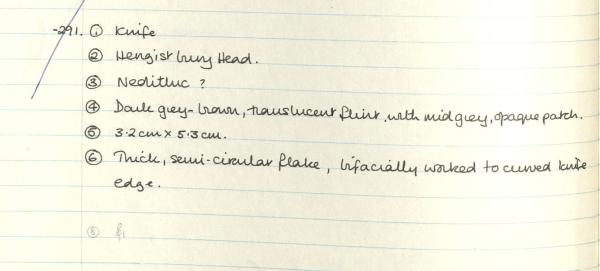 -291. ① Knife
② Hengistbury Head.
③ Neolithic ?
④ Dark grey-brown, translucent flint, with mid grey, opaque patch.
⑤ 3.2cm x 5.3cm.
⑥ Thick, semi-circular flake, bifacially worked to curved knife
edge.
⑧ £1